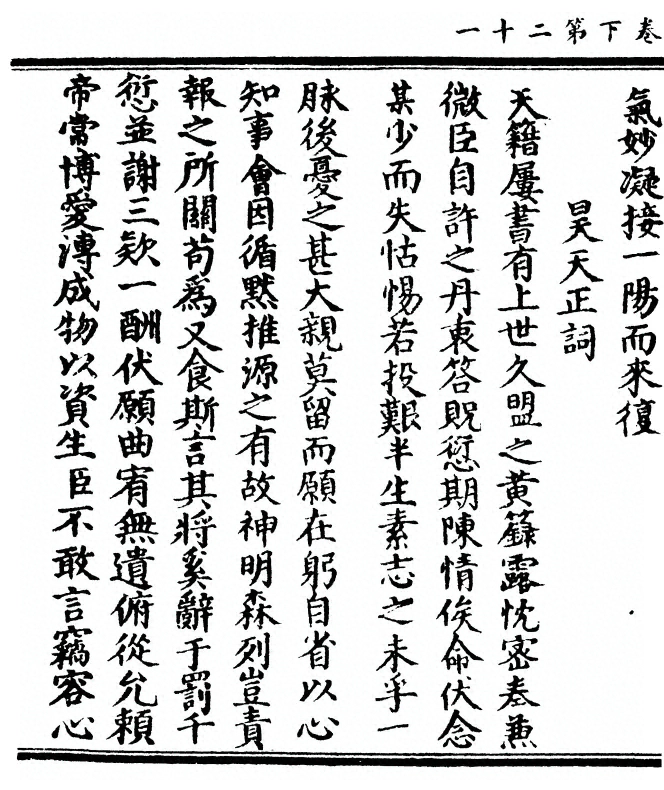 卷下第二十一
氣妙凝接一陽而來復
昊天正詞
天籍屢書有上世久盟之黃籙露忱密奏兼
微臣自許之丹衷答貺愆期陳情俟命伏念
某少而失怙惕若投艱半生素志之未孚一
脉後憂之甚大親莫留而願在躬自省以心
知事會因循默推源之有故神明森列豈責
報之所關苟為又食斯言其將奚辭于罰千
愆並謝三欵一酬伏願曲宥無遺俯從允賴
帝常博愛溥成物以資生臣不敢言竊容心